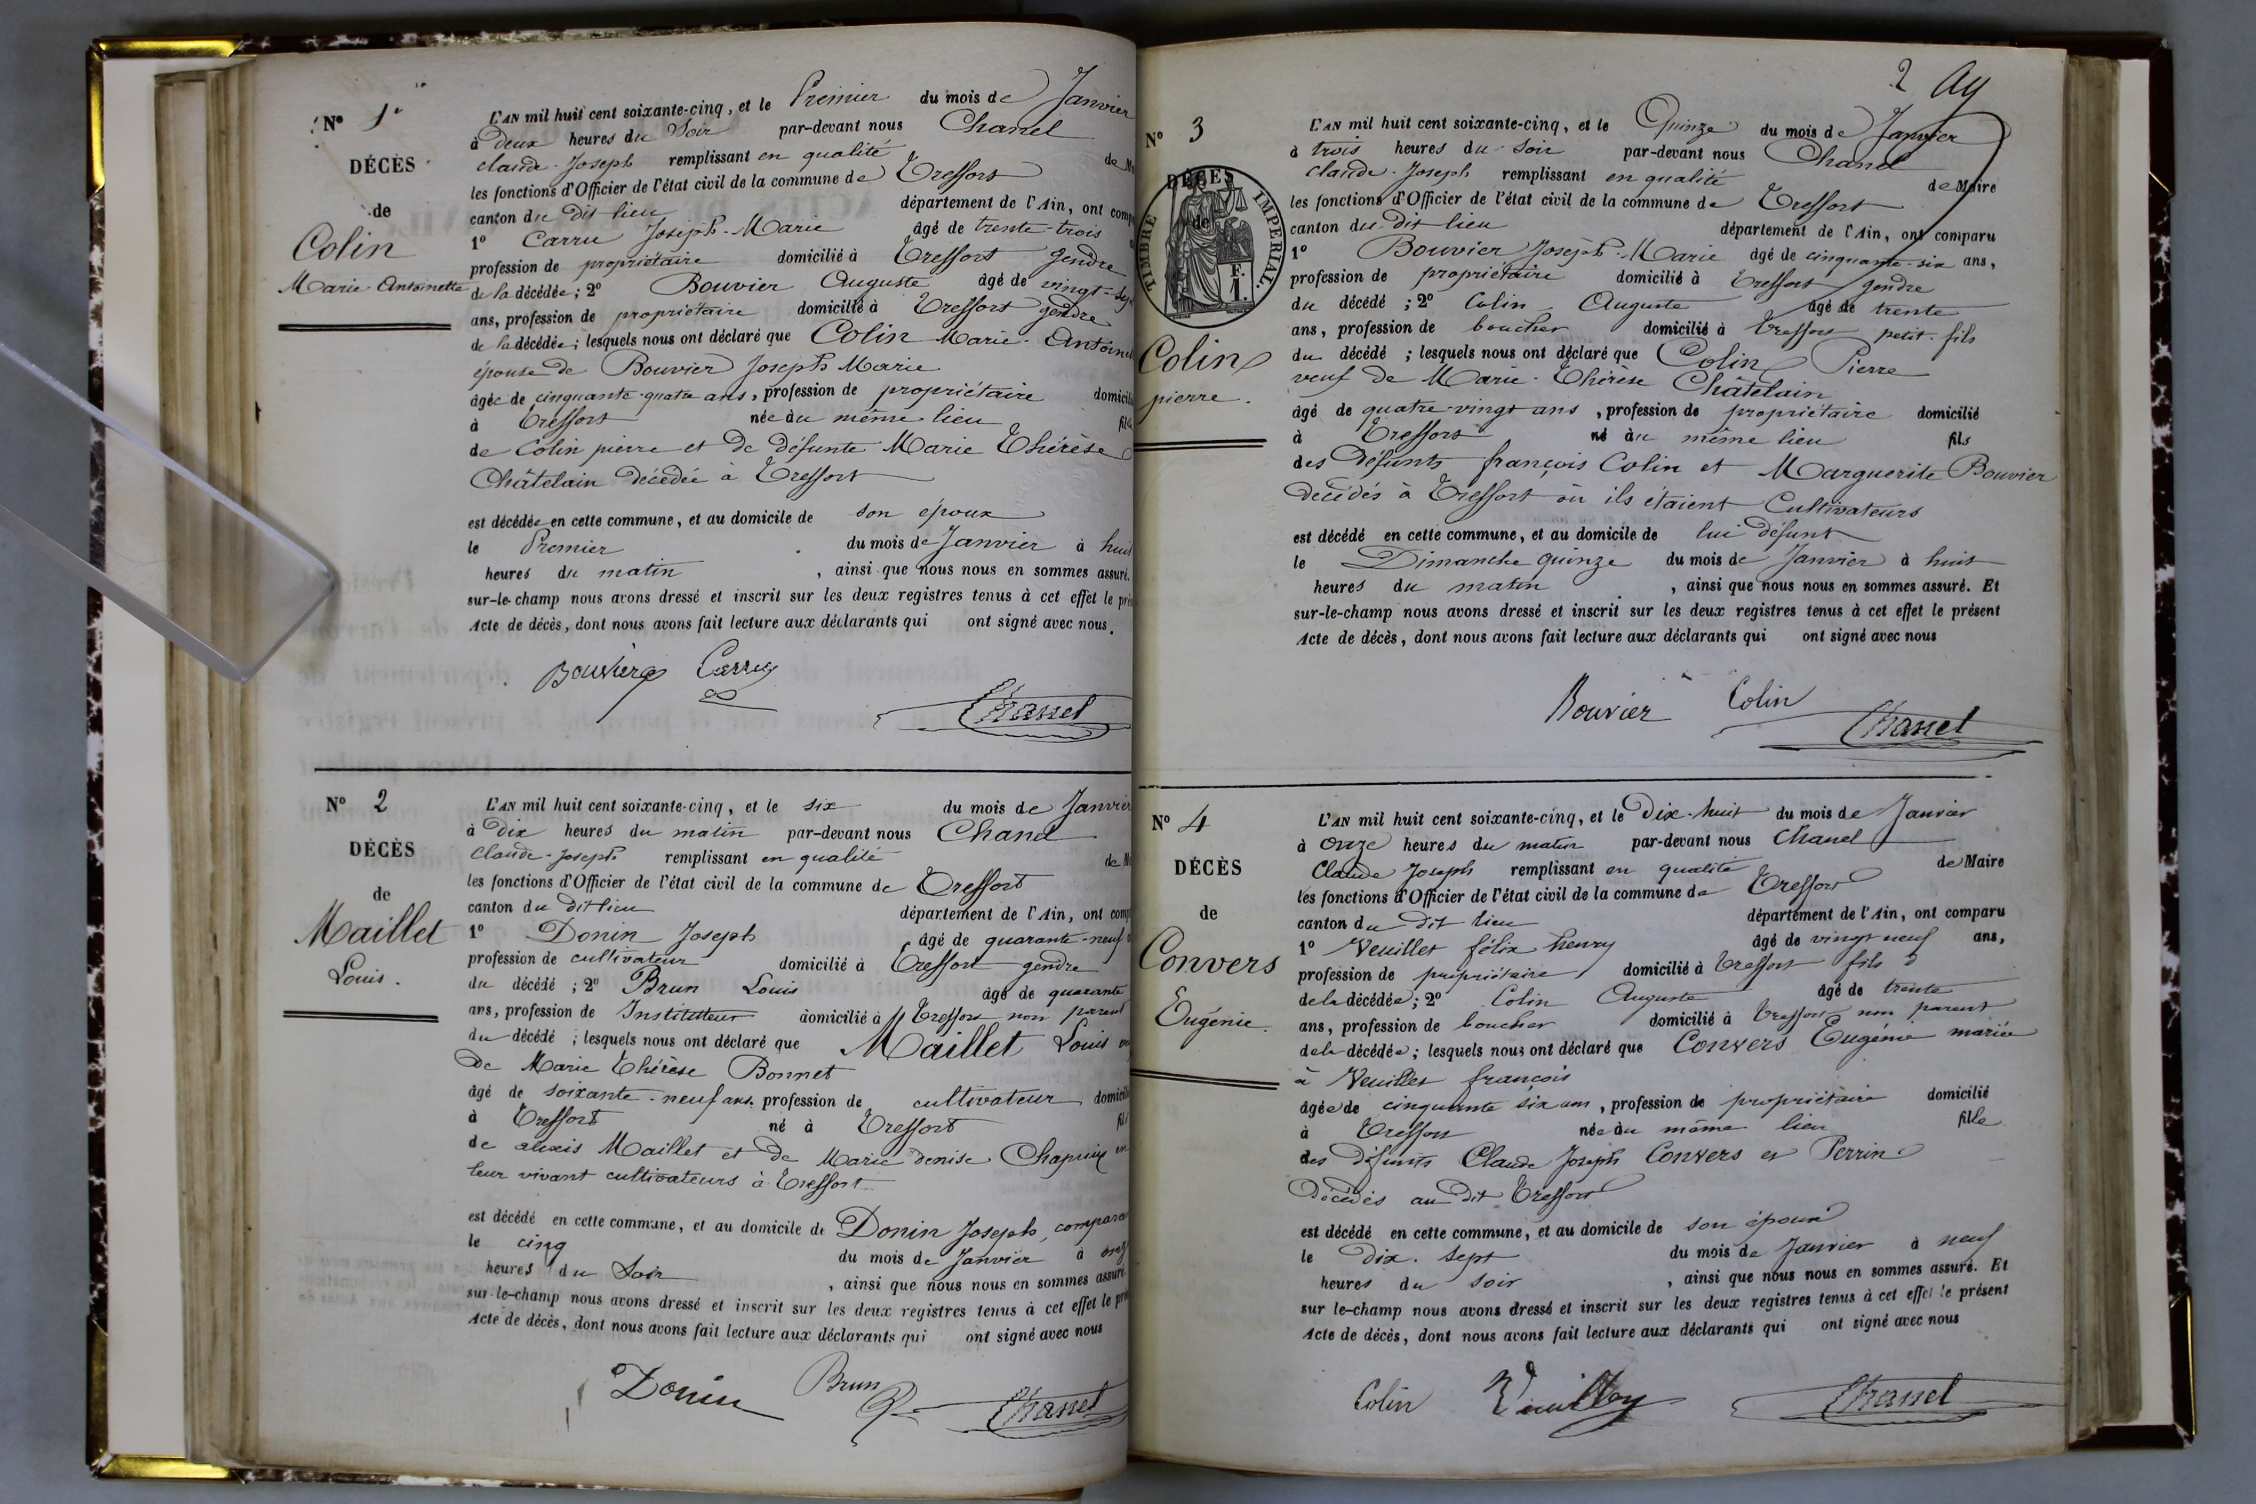 Nº 1er
DÉCÈS
de
Colin
Marie Antoinette
L'AN mil huit cent soixante-cinq, et le Premier du mois de Janvier
à deux heures du Soir par-devant nous Chanel
claude-Joseph remplissant en qualité de
les fonctions d'Officier de l'état civil de la commune de Treffort
canton du dit lieu département de l'Ain, ont
1º Carru Joseph-Marie âgé de trente-trois
profession de propriétaire domicilié à Treffort gendre
de la décédée; 2º Bouvier Auguste âgé de
ans, profession de propriétaire domicilié à Treffort gendre
de la décédée; lesquels nous ont déclaré que Colin Marie-
épouse de Bouvier Joseph Marie
âgée de cinquante-quatre ans, profession de propriétaire
à Treffort née au même lieu
de Colin pierre et de défunte Marie Thérèse
Châtelain décédée à Treffort
est décédée en cette commune, et au domicile de son époux
le Premier du mois de Janvier à huit
heures du matin, ainsi que nous nous en sommes assuré.
sur-le-champ nous avons dressé et inscrit sur les deux registres tenus à cet effet le
Acte de décès, dont nous avons fait lecture aux déclarants qui ont signé avec nous.
Bouvier Carru
Chanel
Nº 2
DÉCÈS
de
Maillet
Louis.
L'AN mil huit cent soixante-cinq, et le six du mois de Janvier
à Dix heures du matin par-devant nous Chanel
Claude-Joseph remplissant en qualité de
les fonctions d'Officier de l'état civil de la commune de Treffort
canton du dit lieu département de l'Ain, ont
1º Donin Joseph âgé de quarante-neuf
profession de cultivateur domicilié à Treffort gendre
du décédé; 2º Brun Louis âgé de quarante
ans, profession de Instituteur domicilié à Treffort non parent
du décédé; lesquels nous ont déclaré que Maillet Louis
de Marie Thérèse Bonnet
âgé de soixante-neuf ans, profession de cultivateur
à Treffort né à Treffort
de alexis Maillet et de Marie denise
leur vivant cultivateurs à Treffort
est décédé en cette commune, et au domicile de Donin Joseph,
le cinq du mois de Janvier à
heures du Soir, ainsi que nous nous en sommes assuré.
sur-le-champ nous avons dressé et inscrit sur les deux registres tenus à cet effet le
Acte de décès, dont nous avons fait lecture aux déclarants qui ont signé avec nous
Donin Brun Chanel
2
Nº 3
DÉCÈS
de
TIMBRE IMPERIAL.
F. 1.
Colin
pierre.
L'AN mil huit cent soixante-cinq, et le Quinze du mois de Janvier
à trois heures du Soir par-devant nous Chanel
Claude-Joseph remplissant en qualité de Maire
les fonctions d'Officier de l'état civil de la commune de Treffort
canton du dit lieu département de l'Ain, ont comparu
1º Bouvier Joseph-Marie âgé de cinquante-six ans,
profession de propriétaire domicilié à Treffort gendre
du décédé; 2º Colin Auguste âgé de trente
ans, profession de boucher domicilié à Treffort petit-fils
du décédé; lesquels nous ont déclaré que Colin Pierre
veuf de Marie-Thérèse Châtelain
âgé de quatre-vingt ans, profession de propriétaire domicilié
à Treffort né au même lieu fils
des défunts françois Colin et Marguerite Bouvier
décédés à Treffort où ils étaient Cultivateurs
est décédé en cette commune, et au domicile de lui défunt
le Dimanche quinze du mois de Janvier à huit
heures du matin, ainsi que nous nous en sommes assuré. Et
sur-le-champ nous avons dressé et inscrit sur les deux registres tenus à cet effet le présent
Acte de décès, dont nous avons fait lecture aux déclarants qui ont signé avec nous
Bouvier Colin Chanel
Nº 4
DÉCÈS
de
Convers
Eugénie.
L'AN mil huit cent soixante-cinq, et le Dix-huit du mois de Janvier
à onze heures du matin par-devant nous Chanel
Claude Joseph remplissant en qualité de Maire
les fonctions d'Officier de l'état civil de la commune de Treffort
canton du dit lieu département de l'Ain, ont comparu
1º Veuillet félix henry âgé de vingt neuf ans,
profession de propriétaire domicilié à Treffort fils
de la décédée; 2º Colin Auguste âgé de trente
ans, profession de boucher domicilié à Treffort non parent
de la décédée; lesquels nous ont déclaré que Convers Eugénie mariée
à Veuillet françois
âgée de cinquante six ans, profession de propriétaire domicilié
à Treffort née au même lieu fille
des défunts Claude Joseph Convers et Perrin
Décédés au dit Treffort
est décédé en cette commune, et au domicile de son époux
le dix-sept du mois de Janvier à neuf
heures du soir, ainsi que nous nous en sommes assuré. Et
sur le-champ nous avons dressé et inscrit sur les deux registres tenus à cet effet le présent
Acte de décès, dont nous avons fait lecture aux déclarants qui ont signé avec nous
Colin Chanel